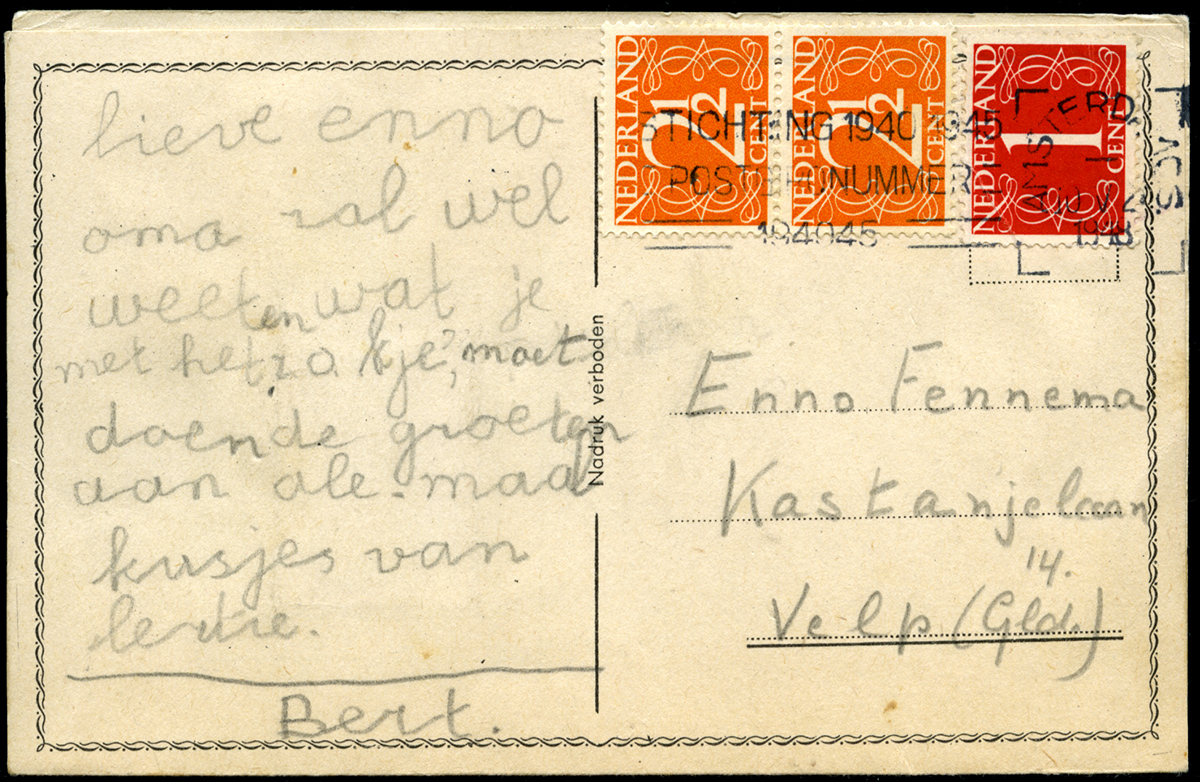 lieve enno
oma zal wel
weeten wat je
met het zakje, moet
doende groeten
aan ale-maal
kusjes van
Bert.
Nadruk verboden
NEDERLAND
2½
CENT
NEDERLAND
2½
CENT
NEDERLAND
1
CENT
STICHTING 1940 1945
POSTGIRONUMMER
194045
AMSTERDA
1948
Enno Fennema
Kastanjelaan
14.
Velp (Gld.)